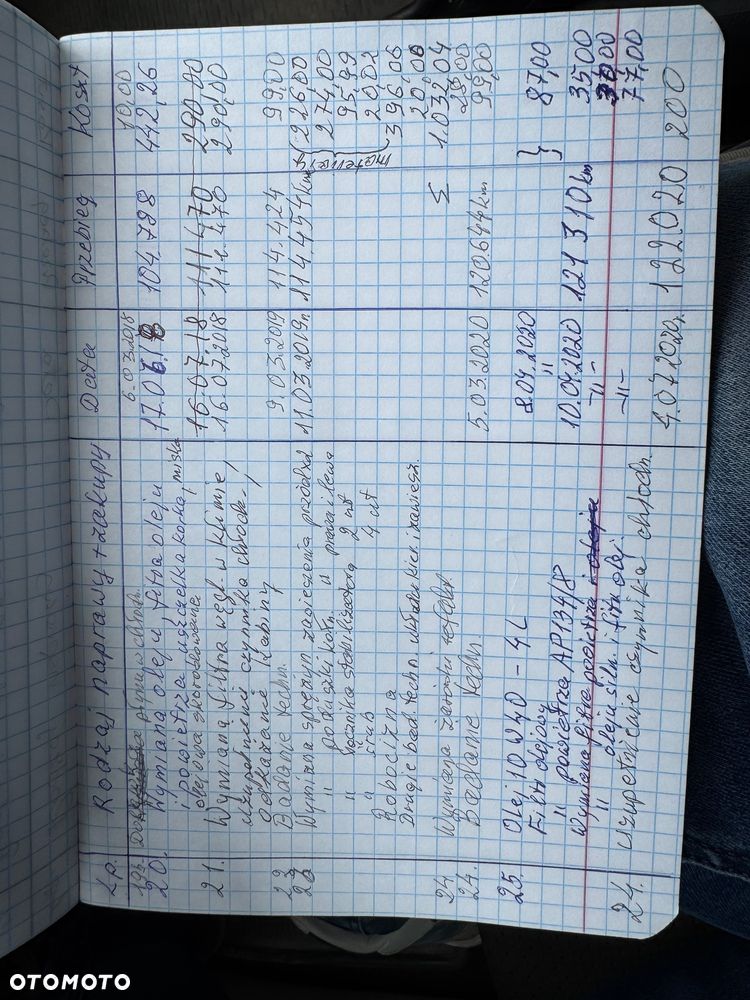 Lp. Rodzaj naprawy + zakupy Data Przebieg Koszt
19. płynu w chłod. 6.03.2018 10,00
20. Wymiana oleju, filtra oleju 17.07.18 104.798 442,26
i powietrza uszczelka korka, miska
olejowa skorodowana 16.07.18 111.470 290,00
21. Wymiana filtra węgl. w klimie 16.07.2018 111.470 290,00
uzupełnienie czynnika chłodz.,
odkażanie kabiny
22 Badanie techn. 9.03.2019 114.424 99,00
Wymiana sprężyn zawieszenia przód oba 11.03.2019r. 114.454 km 226,00
" poduszki kolm. " prawa i lewa 274,00
" łącznika stabilizatora 2 szt 95,99
" śrub 4 szt
Robocizna 396,06
Drugie bad. techn. układu kier. i zawiesz. 20,00
Σ 1.032,04
24. Wymiana żarówki
24. Badanie techn. 5.03.2020 120.644 km 99,00
25. Olej 10W40 - 4L 8.04.2020 } 87,00
Filtr olejowy "
" powietrza AP134/8 10.04.2020 121 310 km 35,00
Wymiana filtra powietrza i oleju -"- 30,00
" oleju siln. i filtr. olej. -"- 77,00
24. Uzupełnienie czynnika chłodn. 4.07.2020r. 122.020 200
OTOMOTO